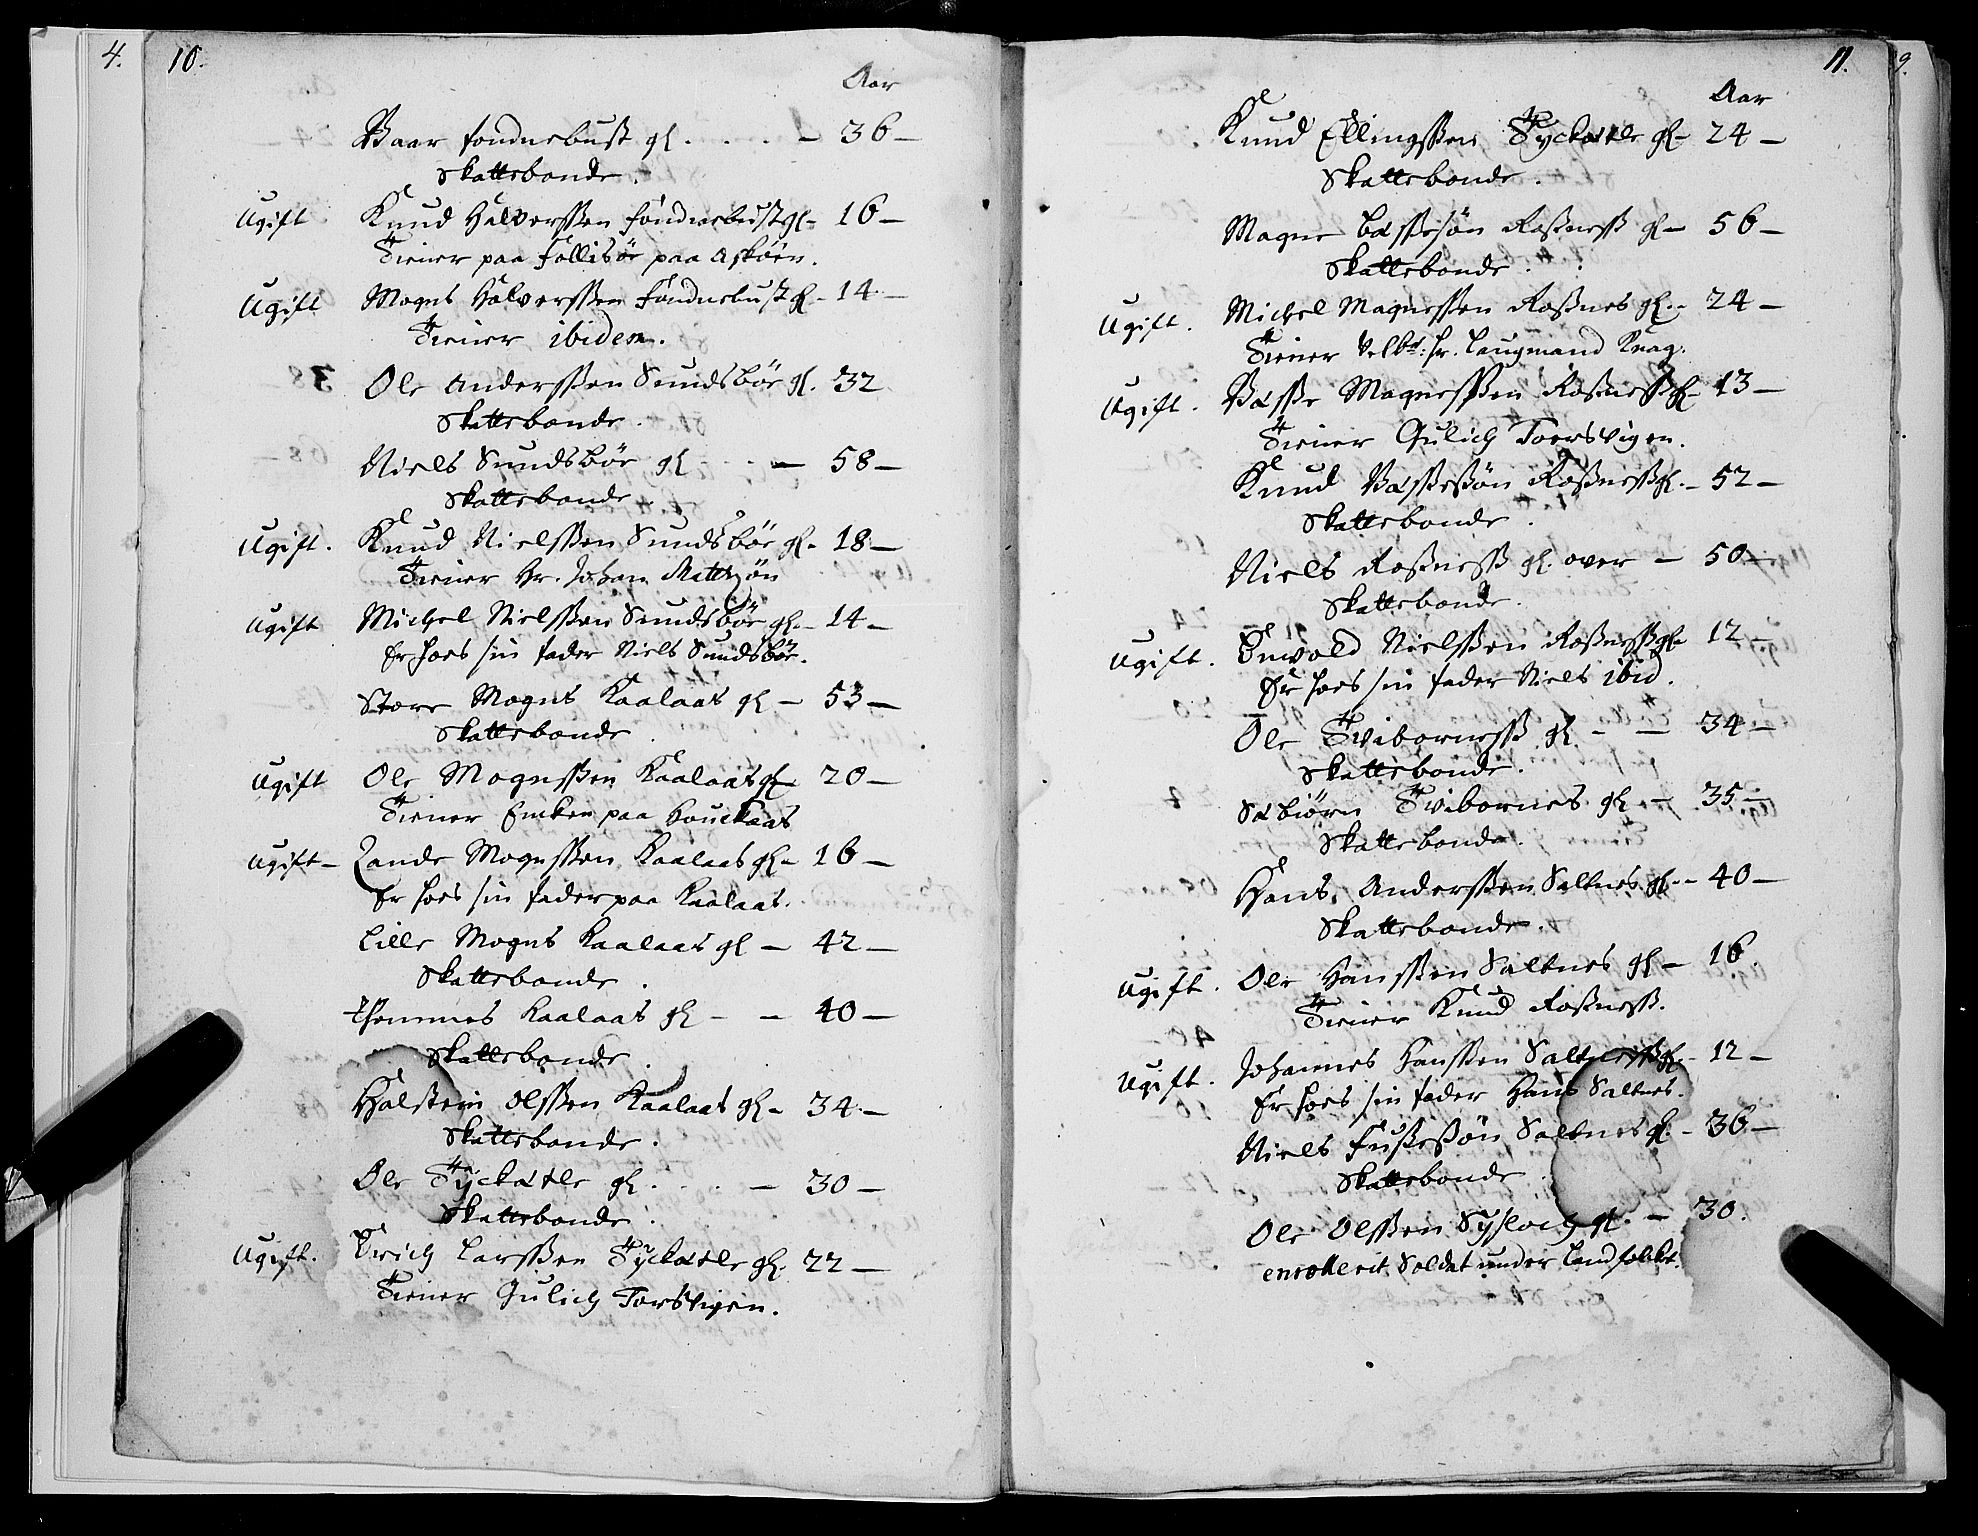 4. 10.
Aar
Baar fondnebust gl. . . . . – 36 –
Skattebonde.
Ugift Knud Halverssen fondnebust gl – 16 –
Tiener paa Follisöe paa Asköen.
Ugift Mogns Halverssen fondnebust gl – 14 –
Tiener ibidem.
Ole Anderssen Sundsböe gl. 32
Skattebonde.
Niels Sundsböe gl – . . – 58 –
Skattebonde.
Ugift. Knud Nielssen Sundsböe gl – 18 –
Tiener Hr. Johan Mattzön
Ugift Michel Nielssen Sundsböe gl. – 14 –
Er hoes sin fader Niels Sundsböe.
Store Mogns Kaalaas gl – 53 –
Skattebonde.
Ugift Ole Mognssen Kaalaas gl 20 –
Tiener Encken paa Houckaas
Ugift – Lande Mognssen Kaalaas gl – 16 –
Er hoes sin fader paa Kaalaas.
Lille Mogns Kaalaas gl – 42 –
Skattebonde.
Thommes Kaalaas gl – – 40 –
Skattebonde.
Halstein Olssen Kaalaas gl – 34 –
Skattebonde.
Ole Tyckætle gl. . . . – 30 –
Skattebonde.
Ugift. Erich Larssen Tyckætle gl. 22 –
Tiener Gulich Torsvigen.
11. 9.
Aar
Knud Ellingssen Tyckætle gl – 24 –
Skattebonde.
Magne Bæssesön Rossness gl – 56 –
Skattebonde.
Ugift. Michel Magnessen Rossnes gl. – 24 –
Tiener Velbr: hr. Laugmand Knag.
Ugift. Bæsse Magnessen Rossness gl – 13 –
Tiener Gulich Toersvigen.
Knud Bæssesön Rossness gl. – 52 –
Skattebonde.
Niels Rossness gl. over – 50 –
Skattebonde.
Ugift. Enwold Nielssen Rossness gl 12 –
Er hoes sin fader Niels ibid.
Ole Tviborness gl. – – 34 –
Skattebonde.
Sæbiörn Tvibornes gl – 35 –
Skattebonde.
Hans Anderssen Saltnes gl. – 40 –
Skattebonde.
Ugift. Ole Hanssen Saltnes gl – 16.
Tiener Knud Rossness.
Ugift. Johannes Hanssen Saltness gl – 12 –
Er hoes sin fader Hans Saltnes.
Niels Fussesön Saltnes gl. – 36 –
Skattebonde
Ole Olssen Syslach gl. – 30.
enrollerit Soldat under Landfolket.